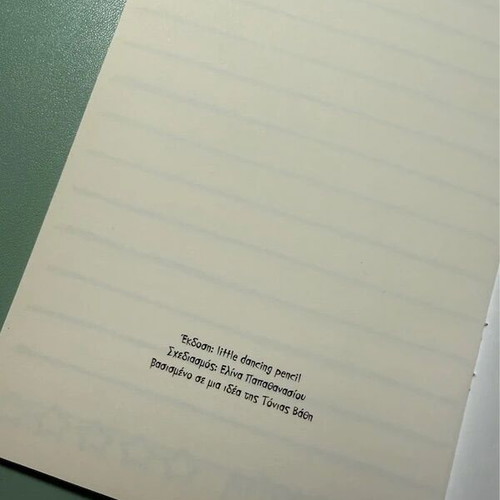 Έκδοση: little dancing pencil
Σχεδιασμός: Ελίνα Παπαθανασίου
βασισμένο σε μια ιδέα της Τόνιας Βάθη